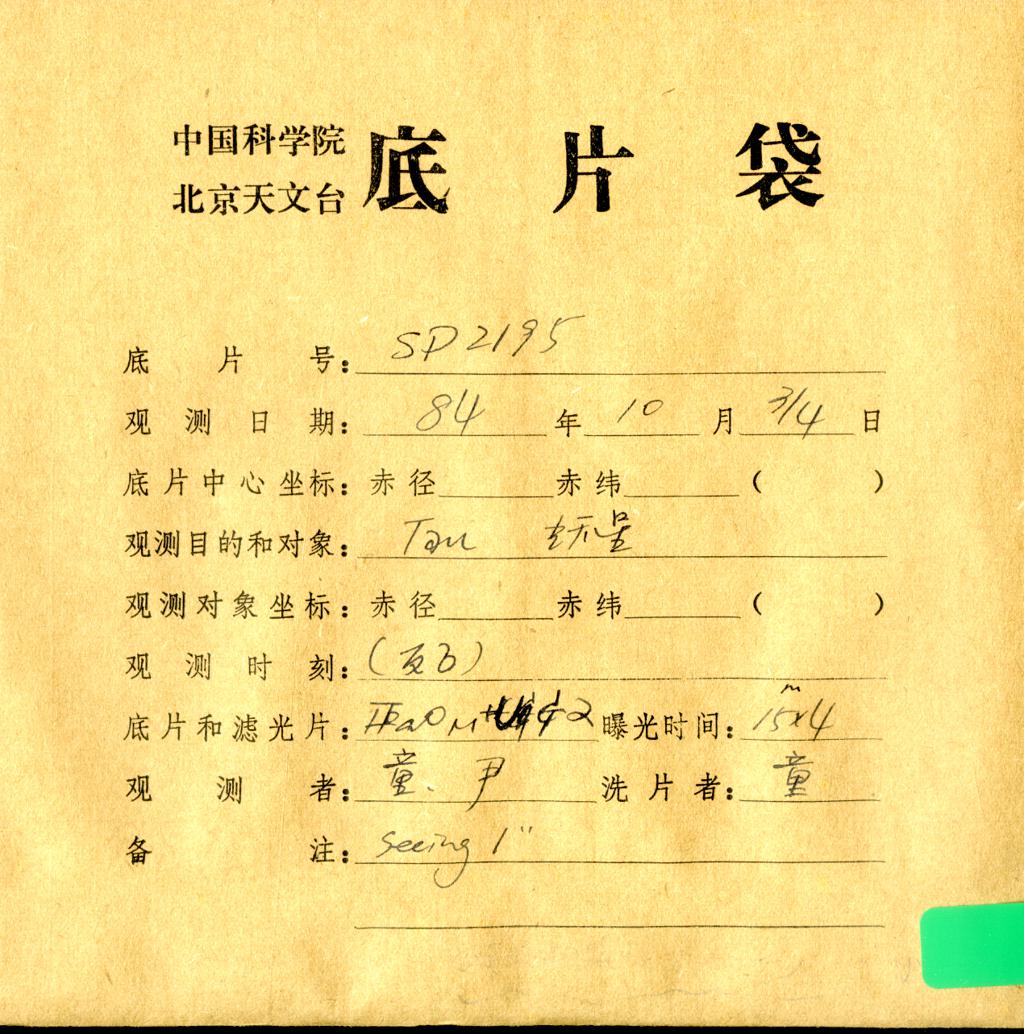 中国科学院
北京天文台
底片袋
底片号：SP2195
观测日期：84年10月3/4日
底片中心坐标：赤径 赤纬 （ ）
观测目的和对象：Tau
观测对象坐标：赤径 赤纬 （ ）
观测时刻：
底片和滤光片：IIaO 曝光时间：15ᵐx4
观测者：童、尹 洗片者：童
备注：seeing 1"